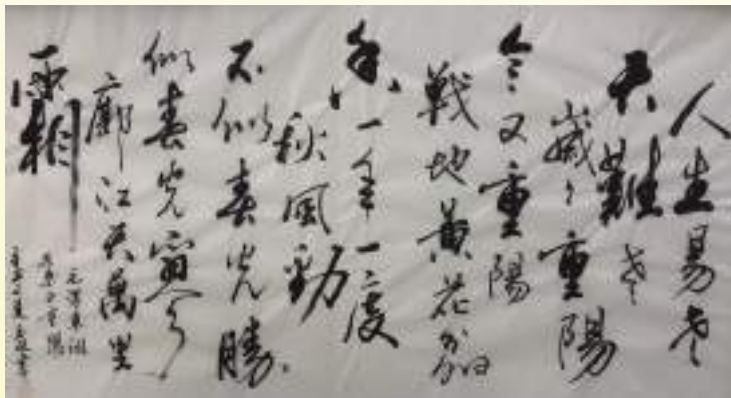 人生易老
天難老
歲々重陽
今又重陽
戰地黃花分外
香一年一度
秋風勁
不似春光勝
似春光寥
廓江天萬里
霜
毛澤東詞
采桑子重陽